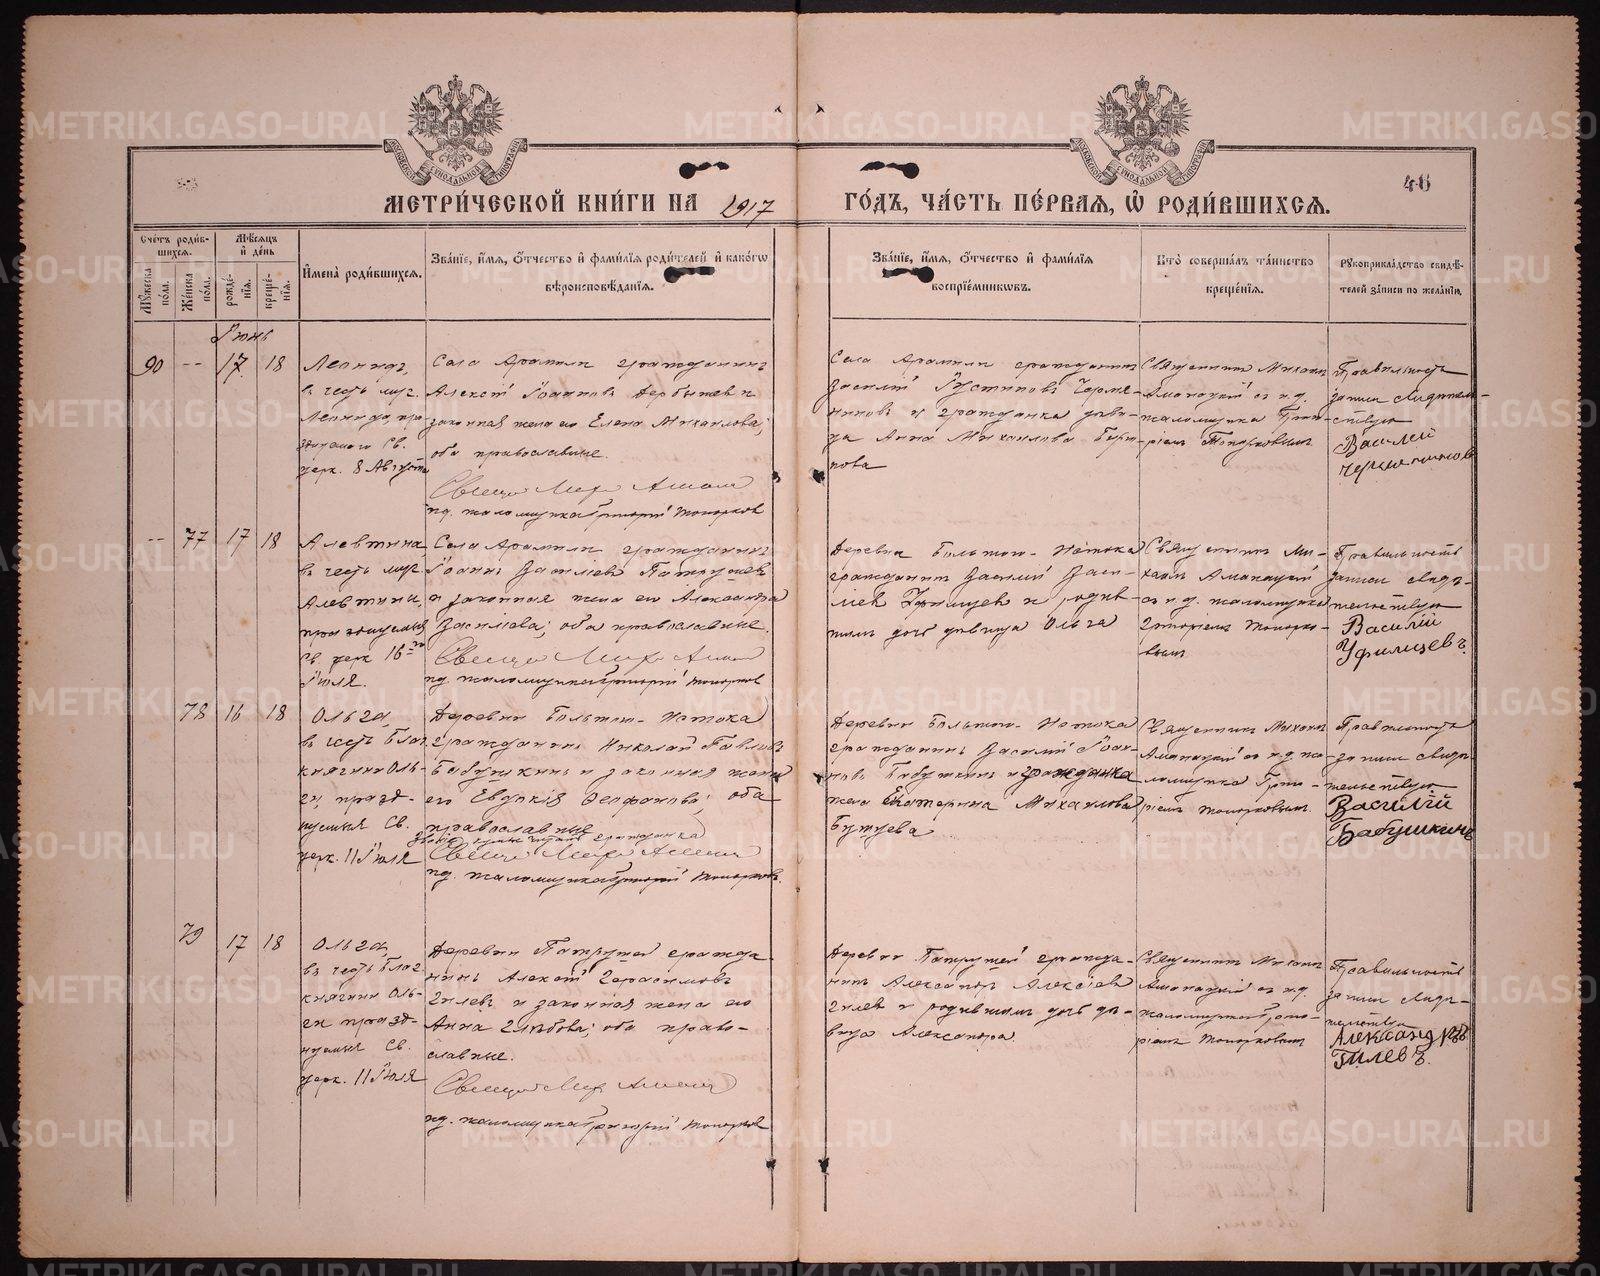 МЕТРИЧЕСКОЙ КНИГИ НА 1917 ГОДЪ, ЧАСТЬ ПЕРВАЯ, Ѿ РОДИВШИХСѦ.
46
Счетъ родив-
шихся.
Мѣсяцъ
и день
Мужеска
пола.
Женска
пола.
рожде-
нія.
креще-
нія.
Имена родившихся.
Званіе, имя, отчество и фамилія родителей и какогѡ
вѣроисповѣданія.
Званіе, имя, отчество и фамилія
воспріемникѡвъ.
Кто совершалъ таинство
крещенія.
Рукоприкладство свидѣ-
телей записи по желанію.
Іюнь
90 -- 17 18
Леонидъ,
въ честь муч.
Леонида, пра-
зднуемаго Св.
церк. 8 Августа
Села Арамили гражданинъ
Алексій Іоанновъ Дербышев и
законная жена его Елена Михаилова;
оба православные.
пд. псаломщика Григорій Топорков
Села Арамили гражданинъ
Василій Іустиновъ Черме-
ниновъ и гражданка дѣви-
ца Анна Михаилова
Священник Михаил
съ и.д.
псаломщика Григо-
ріем Топорковым
Правильность
записи свидѣтель-
ствую
Василей
-- 77 17 18
Алевтина,
въ честь муч.
Алевтины,
празднуемыя
Св. церк 16-го
Іюля.
Села Арамили гражданинъ
Іоаннъ Василіев Патрушев
и законная жена его Александра
Василіева; оба православные.
пд. псаломщика Григорій Топорков
Деревни Большого Истока
гражданин Василій Васи-
ліев Уфимцев и родив-
шим дочь дѣвица Ольга
Священник Ми-
хаил
съ и.д. псаломщика
Григоріем Топорко-
вым
Правильность
записи свидѣ-
тельствую
Василій
Уфимцевъ.
78 16 18
Ольга,
въ честь Благ.
княгини Оль-
ги, празд-
нуемыя Св.
церк. 11 Іюля
Деревни Большого Истока
гражданинъ Николай Павловъ
Бабушкинъ и законная жена
его Евдокія; оба
православные
гражданка
пд. псаломщика Григорій Топорковъ.
Деревни Большого Истока
гражданинъ Василій Іоан-
новъ Бабушкинъ и гражданка
жена Екатерина Михаилова
Священник Михаил
съ и.д. пса-
ломщика Григо-
ріем Топорковым
Правильность
записи свидѣ-
тельствую
Василій
Бабушкинъ
79 17 18
Ольга,
въ честь Благ.
княгини Оль-
ги празд-
нуемыя Св.
церк. 11 Іюля
Деревни Патрушей гражда-
нинъ Алексій Герасимовъ
Гилевъ и законная жена его
Анна Глѣбова; оба право-
славные.
пд. псаломщика Григорій Топорков
Деревни Патрушей гражда-
нин Александр Алексіев
Гилев и родившим дочь дѣ-
вица Александра.
Священник Михаил
съ и.д.
псаломщика Григо-
ріем Топорковым
Правильность
записи свидѣ-
тельствую
Александръ
Гилевъ.
METRIKI.GASO-URAL.RU